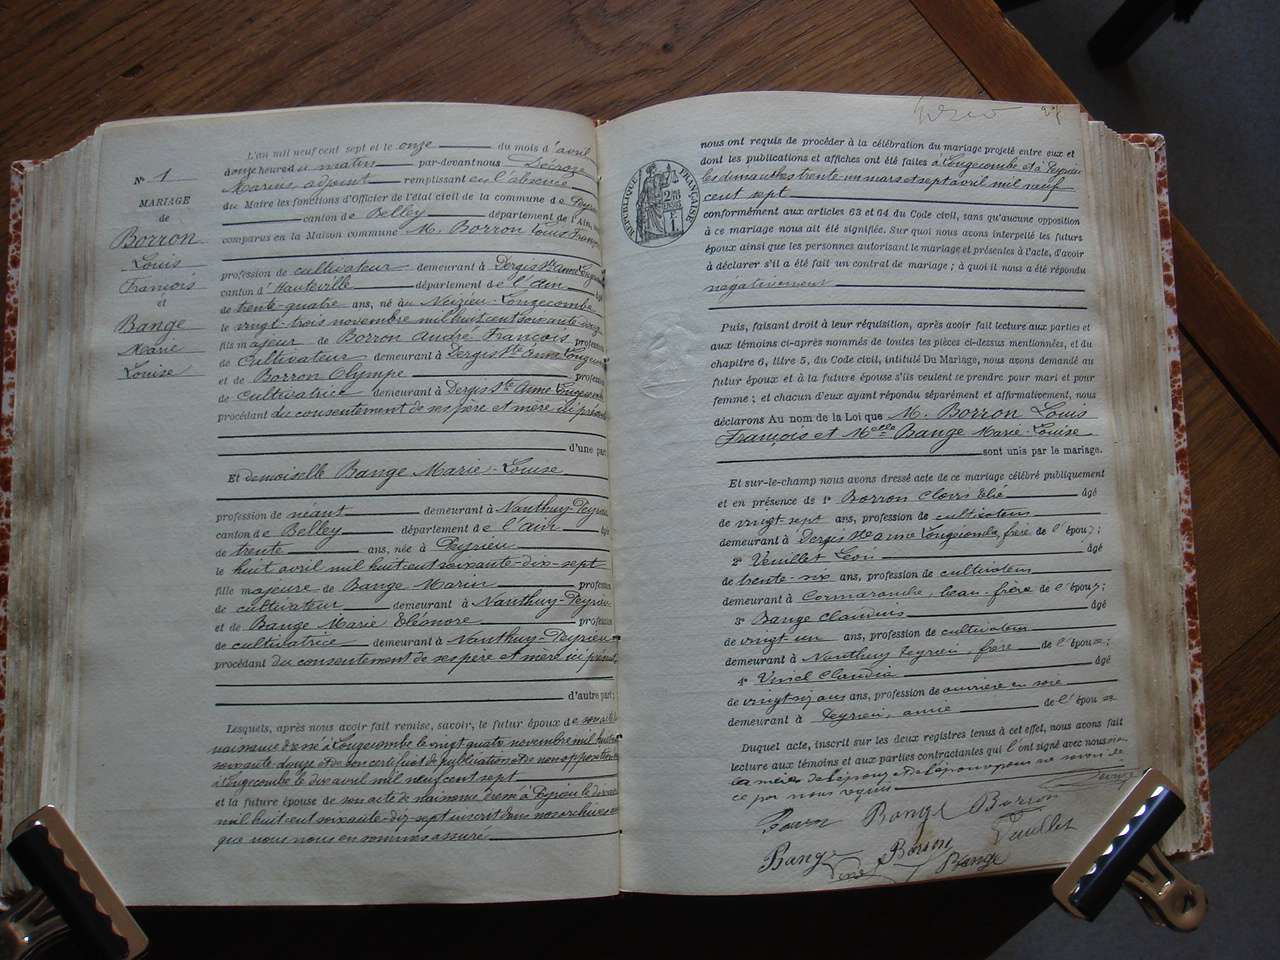 N° 1
MARIAGE
de
Borron
Louis
François
et
Bange
Marie
Louise
L'an mil neuf cent sept et le onze du mois d'avril
à onze heures du matin par-devant nous Décroze
Marius adjoint remplissant en l'absence
du Maire les fonctions d'Officier de l'état civil de la commune de Peyrieu
canton de Belley département de l'Ain,
comparus en la Maison commune M. Borron Louis François
profession de cultivateur demeurant à Dergis Ste Anne Longecombe
canton d'Hauteville département de l'Ain âgé
de trente-quatre ans, né au Longecombe
le vingt-trois novembre mil huit cent soixante-douze
fils majeur de Borron André François profession
de Cultivateur demeurant à Dergis Ste Anne Longecombe
et de Borron Olympe profession
de cultivatrice demeurant à Dergis Ste Anne Longecombe
procédant du consentement de ses père et mère ici présents
d'une part
Et demoiselle Bange Marie-Louise
profession de néant demeurant à Nanthuy-Peyrieu
canton de Belley département de l'ain âgé
de trente ans, née à Peyrieu
le huit avril mil huit cent soixante-dix-sept
fille majeure de Bange Marin profession
de cultivateur demeurant à Nanthuy-Peyrieu
et de Bange Marie Eléonore profession
de cultivatrice demeurant à Nanthuy-Peyrieu
procédant du consentement de ses père et mère ici présents
d'autre part;
Lesquels, après nous avoir fait remise, savoir, le futur époux de son acte de
naissance dressé à Longecombe le vingt quatre novembre mil huit cent
soixante douze et de son certificat de publication et de non opposition
à Longecombe le dix avril mil neuf cent sept
et la future épouse de son acte de naissance dressé à Peyrieu le dix avril
mil huit cent soixante-dix-sept inscrit dans nos archives et
que nous nous en sommes assuré
RÉPUBLIQUE FRANÇAISE
nous ont requis de procéder à la célébration du mariage projeté entre eux et
dont les publications et affiches ont été faites à Longecombe et à Peyrieu
les dimanches trente un mars et sept avril mil neuf
cent sept
conformément aux articles 63 et 64 du Code civil, sans qu'aucune opposition
à ce mariage nous ait été signifiée. Sur quoi nous avons interpellé les futurs
époux ainsi que les personnes autorisant le mariage et présentes à l'acte, d'avoir
à déclarer s'il a été fait un contrat de mariage ; à quoi il nous a été répondu
négativement
Puis, faisant droit à leur réquisition, après avoir fait lecture aux parties et
aux témoins ci-après nommés de toutes les pièces ci-dessus mentionnées, et du
chapitre 6, titre 5, du Code civil, intitulé Du Mariage, nous avons demandé au
futur époux et à la future épouse s'ils veulent se prendre pour mari et pour
femme ; et chacun d'eux ayant répondu séparément et affirmativement, nous
déclarons Au nom de la Loi que M. Borron Louis
François et Melle Bange Marie-Louise
sont unis par le mariage.
Et sur-le-champ nous avons dressé acte de ce mariage célébré publiquement
et en présence de 1° Borron Clovis Elie âgé
de vingt sept ans, profession de cultivateur
demeurant à Dergis Ste anne Longecombe, frère de l'époux;
2° Veuillet Léon âgé
de trente-six ans, profession de cultivateur
demeurant à Cormaranche, beau-frère de l'époux;
3° Bange Claudius âgé
de vingt-un ans, profession de cultivateur
demeurant à Nanthuy Peyrieu, frère de l'épouse;
4° Claudia âgé
de vingt six ans, profession de ouvrière en soie
demeurant à Peyrieu, amie de l'épouse
Duquel acte, inscrit sur les deux registres tenus à cet effet, nous avons fait
lecture aux témoins et aux parties contractantes qui l'ont signé avec nous non
les mères de l'époux et de l'épouse pour ne savoir de
ce par nous requis
Bange Borron
Veuillet
Bange Borron
Bange